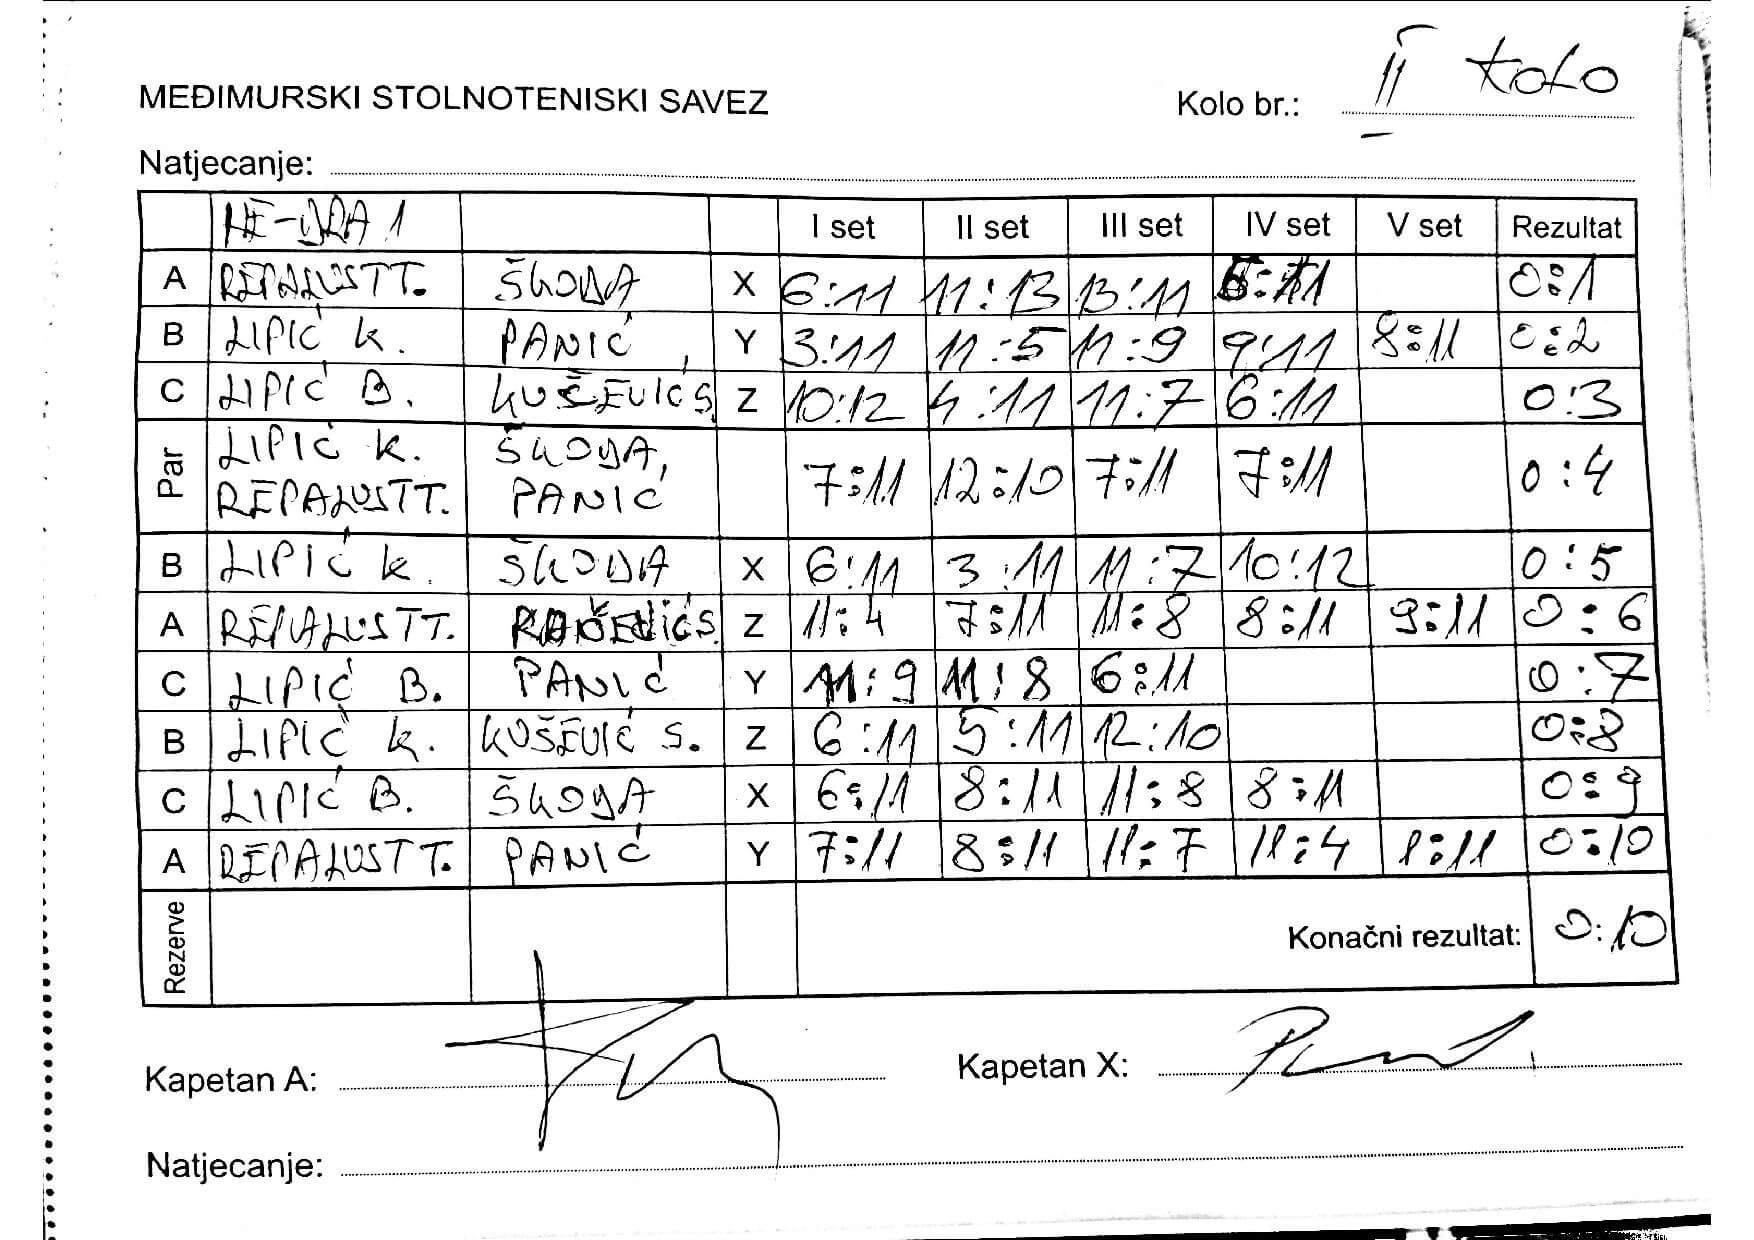 II kolo
MEĐIMURSKI STOLNOTENISKI SAVEZ
Kolo br.:
Natjecanje:
NE-DRA 1 I set II set III set IV set V set Rezultat
A REPALUST T. ŠKODA X 6:11 11:13 13:11 6:11 0:1
B LIPIĆ K. PANIĆ Y 3:11 11:5 11:9 9:11 8:11 0:2
C LIPIĆ B. KUŠEVIĆ S. Z 10:12 4:11 11:7 6:11 0:3
LIPIĆ K. ŠKODA,
Par 7:11 12:10 7:11 7:11 0:4
REPALUST T. PANIĆ
B LIPIĆ K. ŠKODA X 6:11 3:11 11:7 10:12 0:5
A REPALUST T. Z 11:4 7:11 11:8 8:11 9:11 0:6
C LIPIĆ B. PANIĆ Y 11:9 11:8 6:11 0:7
B LIPIĆ K. KUŠEVIĆ S. Z 6:11 5:11 12:10 0:8
C LIPIĆ B. ŠKODA X 6:11 8:11 11:8 8:11 0:9
A REPALUST T. PANIĆ Y 7:11 8:11 11:7 11:4 8:11 0:10
Rezerve Konačni rezultat: 0:10
Kapetan A: Kapetan X:
Natjecanje: